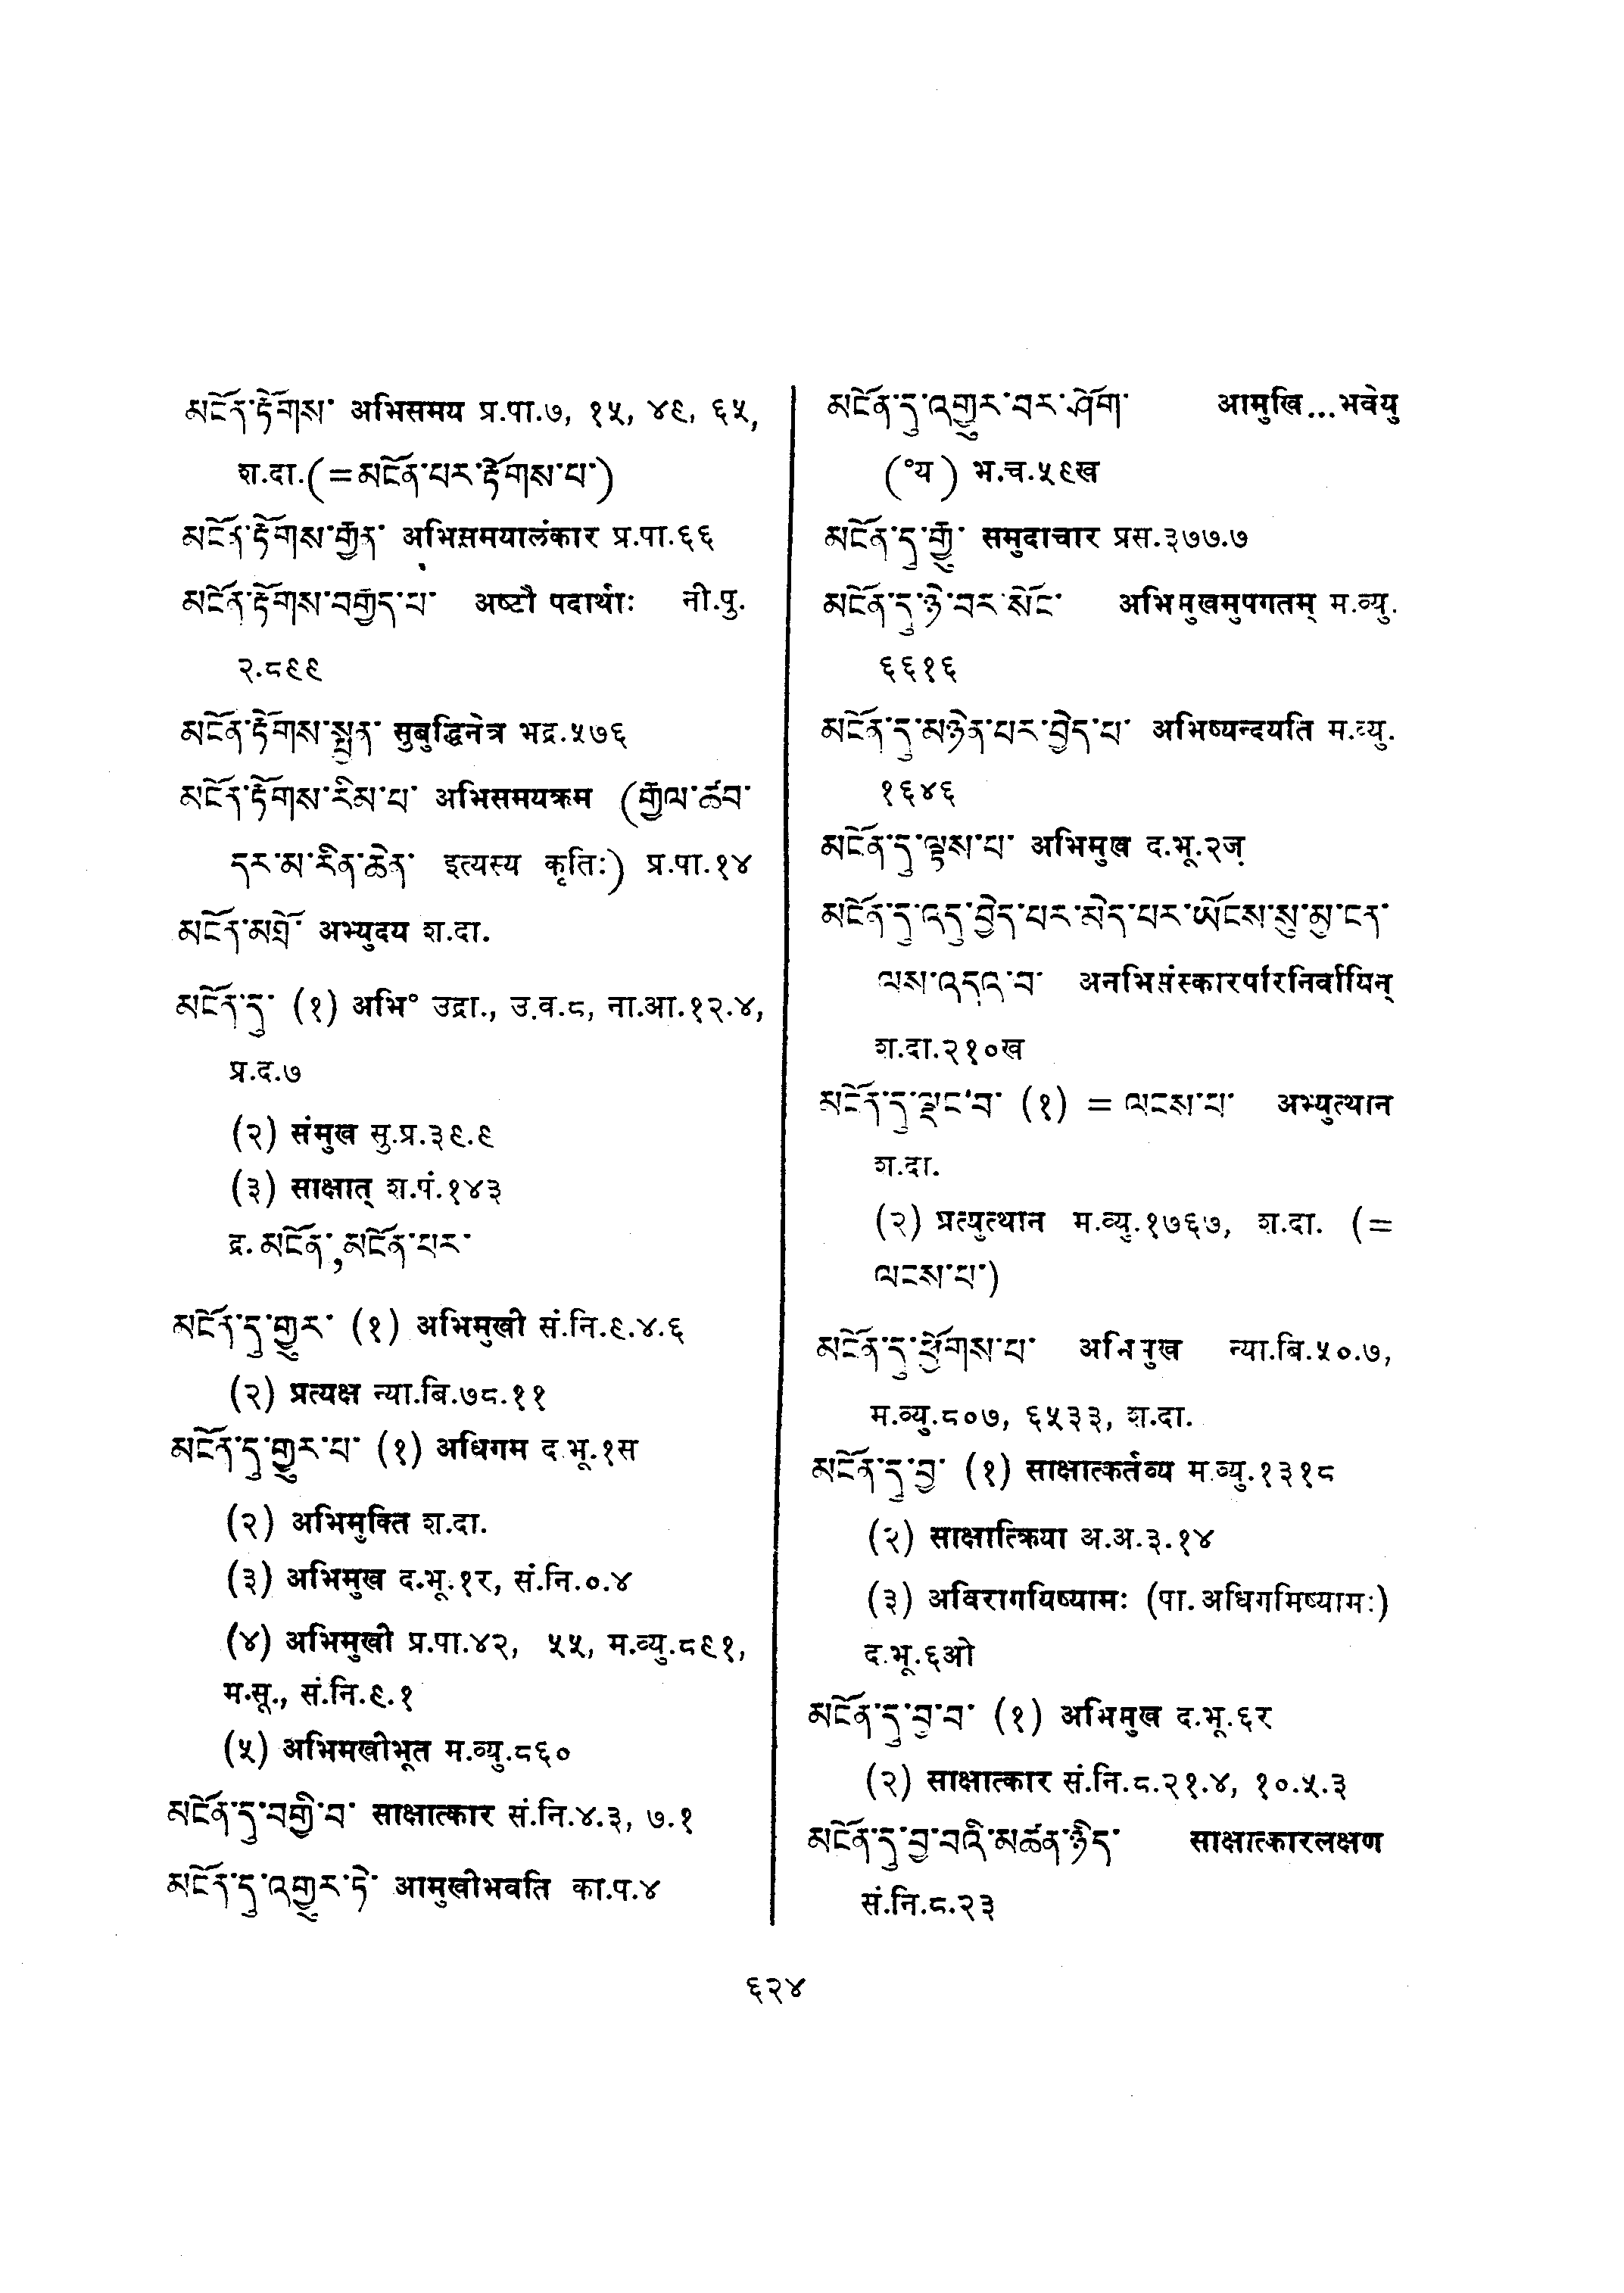 མངོན་རྟོགས་ अभिसमय प्र.पा.७, १५, ४९, ६५,
श.दा.(=མངོན་པར་རྟོགས་པ་)
མངོན་རྟོགས་རྒྱན་ अभिसमयालंकार प्र.पा.६६
མངོན་རྟོགས་བརྒྱད་པ་ अष्टौ पदार्थाः नी.पु.
२.८९९
མངོན་རྟོགས་སྤྱན་ सुबुद्धिनेत्र भद्र.५७६
མངོན་རྟོགས་རིམ་པ་ अभिसमयक्रम (རྒྱལ་ཚབ་
དར་མ་རིན་ཆེན་ इत्यस्य कृतिः) प्र.पा.१४
མངོན་མཐོ་ अभ्युदय श.दा.
མངོན་དུ་ (१) अभि° उद्रा., उ.व.८, ना.आ.१२.४,
प्र.द.७
(२) संमुख सु.प्र.३९.९
(३) साक्षात् श.पं.१४३
द्र. མངོན་, མངོན་པར་
མངོན་དུ་གྱུར་ (१) अभिमुखी सं.नि.९.४.६
(२) प्रत्यक्ष न्या.बि.७८.११
མངོན་དུ་གྱུར་པ་ (१) अधिगम द.भू.१स
(२) अभिमुक्ति श.दा.
(३) अभिमुख द.भू.१र, सं.नि.०.४
(४) अभिमुखी प्र.पा.४२, ५५, म.व्यु.८९१,
म.सू., सं.नि.९.१
(५) अभिमखीभूत म.व्यु.८६०
མངོན་དུ་བགྱི་བ་ साक्षात्कार सं.नि.४.३, ७.१
མངོན་དུ་འགྱུར་ཏེ་ आमुखीभवति का.प.४
མངོན་དུ་འགྱུར་བར་ཤོག་ आमुखि...भवेयु
(°य) भ.च.५९ख
མངོན་དུ་རྒྱུ་ समुदाचार प्रस.३७७.७
མངོན་དུ་ཉེ་བར་སོང་ अभिमुखमुपगतम् म.व्यु.
६६१६
མངོན་དུ་མཉེན་པར་བྱེད་པ་ अभिष्यन्दयति म.व्यु.
१६४६
མངོན་དུ་ལྟས་པ་ अभिमुख द.भू.२ज
མངོན་དུ་འདུ་བྱེད་པར་མེད་པར་ཡོངས་སུ་མྱ་ངན་
ལས་འདའ་བ་ अनभिसंस्कारपरिनिर्वायिन्
श.दा.२१०ख
མངོན་དུ་ལྡང་བ་ (१) = ལངས་པ་ अभ्युत्थान
श.दा.
(२) प्रत्युत्थान म.व्यु.१७६७, श.दा. (=
ལངས་པ་)
མངོན་དུ་ཕྱོགས་པ་ अभिमुख न्या.बि.५०.७,
म.व्यु.८०७, ६५३३, श.दा.
མངོན་དུ་བྱ་ (१) साक्षात्कर्तव्य म.व्यु.१३१८
(२) साक्षात्क्रिया अ.अ.३.१४
(३) अविरागयिष्यामः (पा. अधिगमिष्यामः)
द.भू.६ओ
མངོན་དུ་བྱ་བ་ (१) अभिमुख द.भू.६र
(२) साक्षात्कार सं.नि.८.२१.४, १०.५.३
མངོན་དུ་བྱ་བའི་མཚན་ཉིད་ साक्षात्कारलक्षण
सं.नि.८.२३
६२४